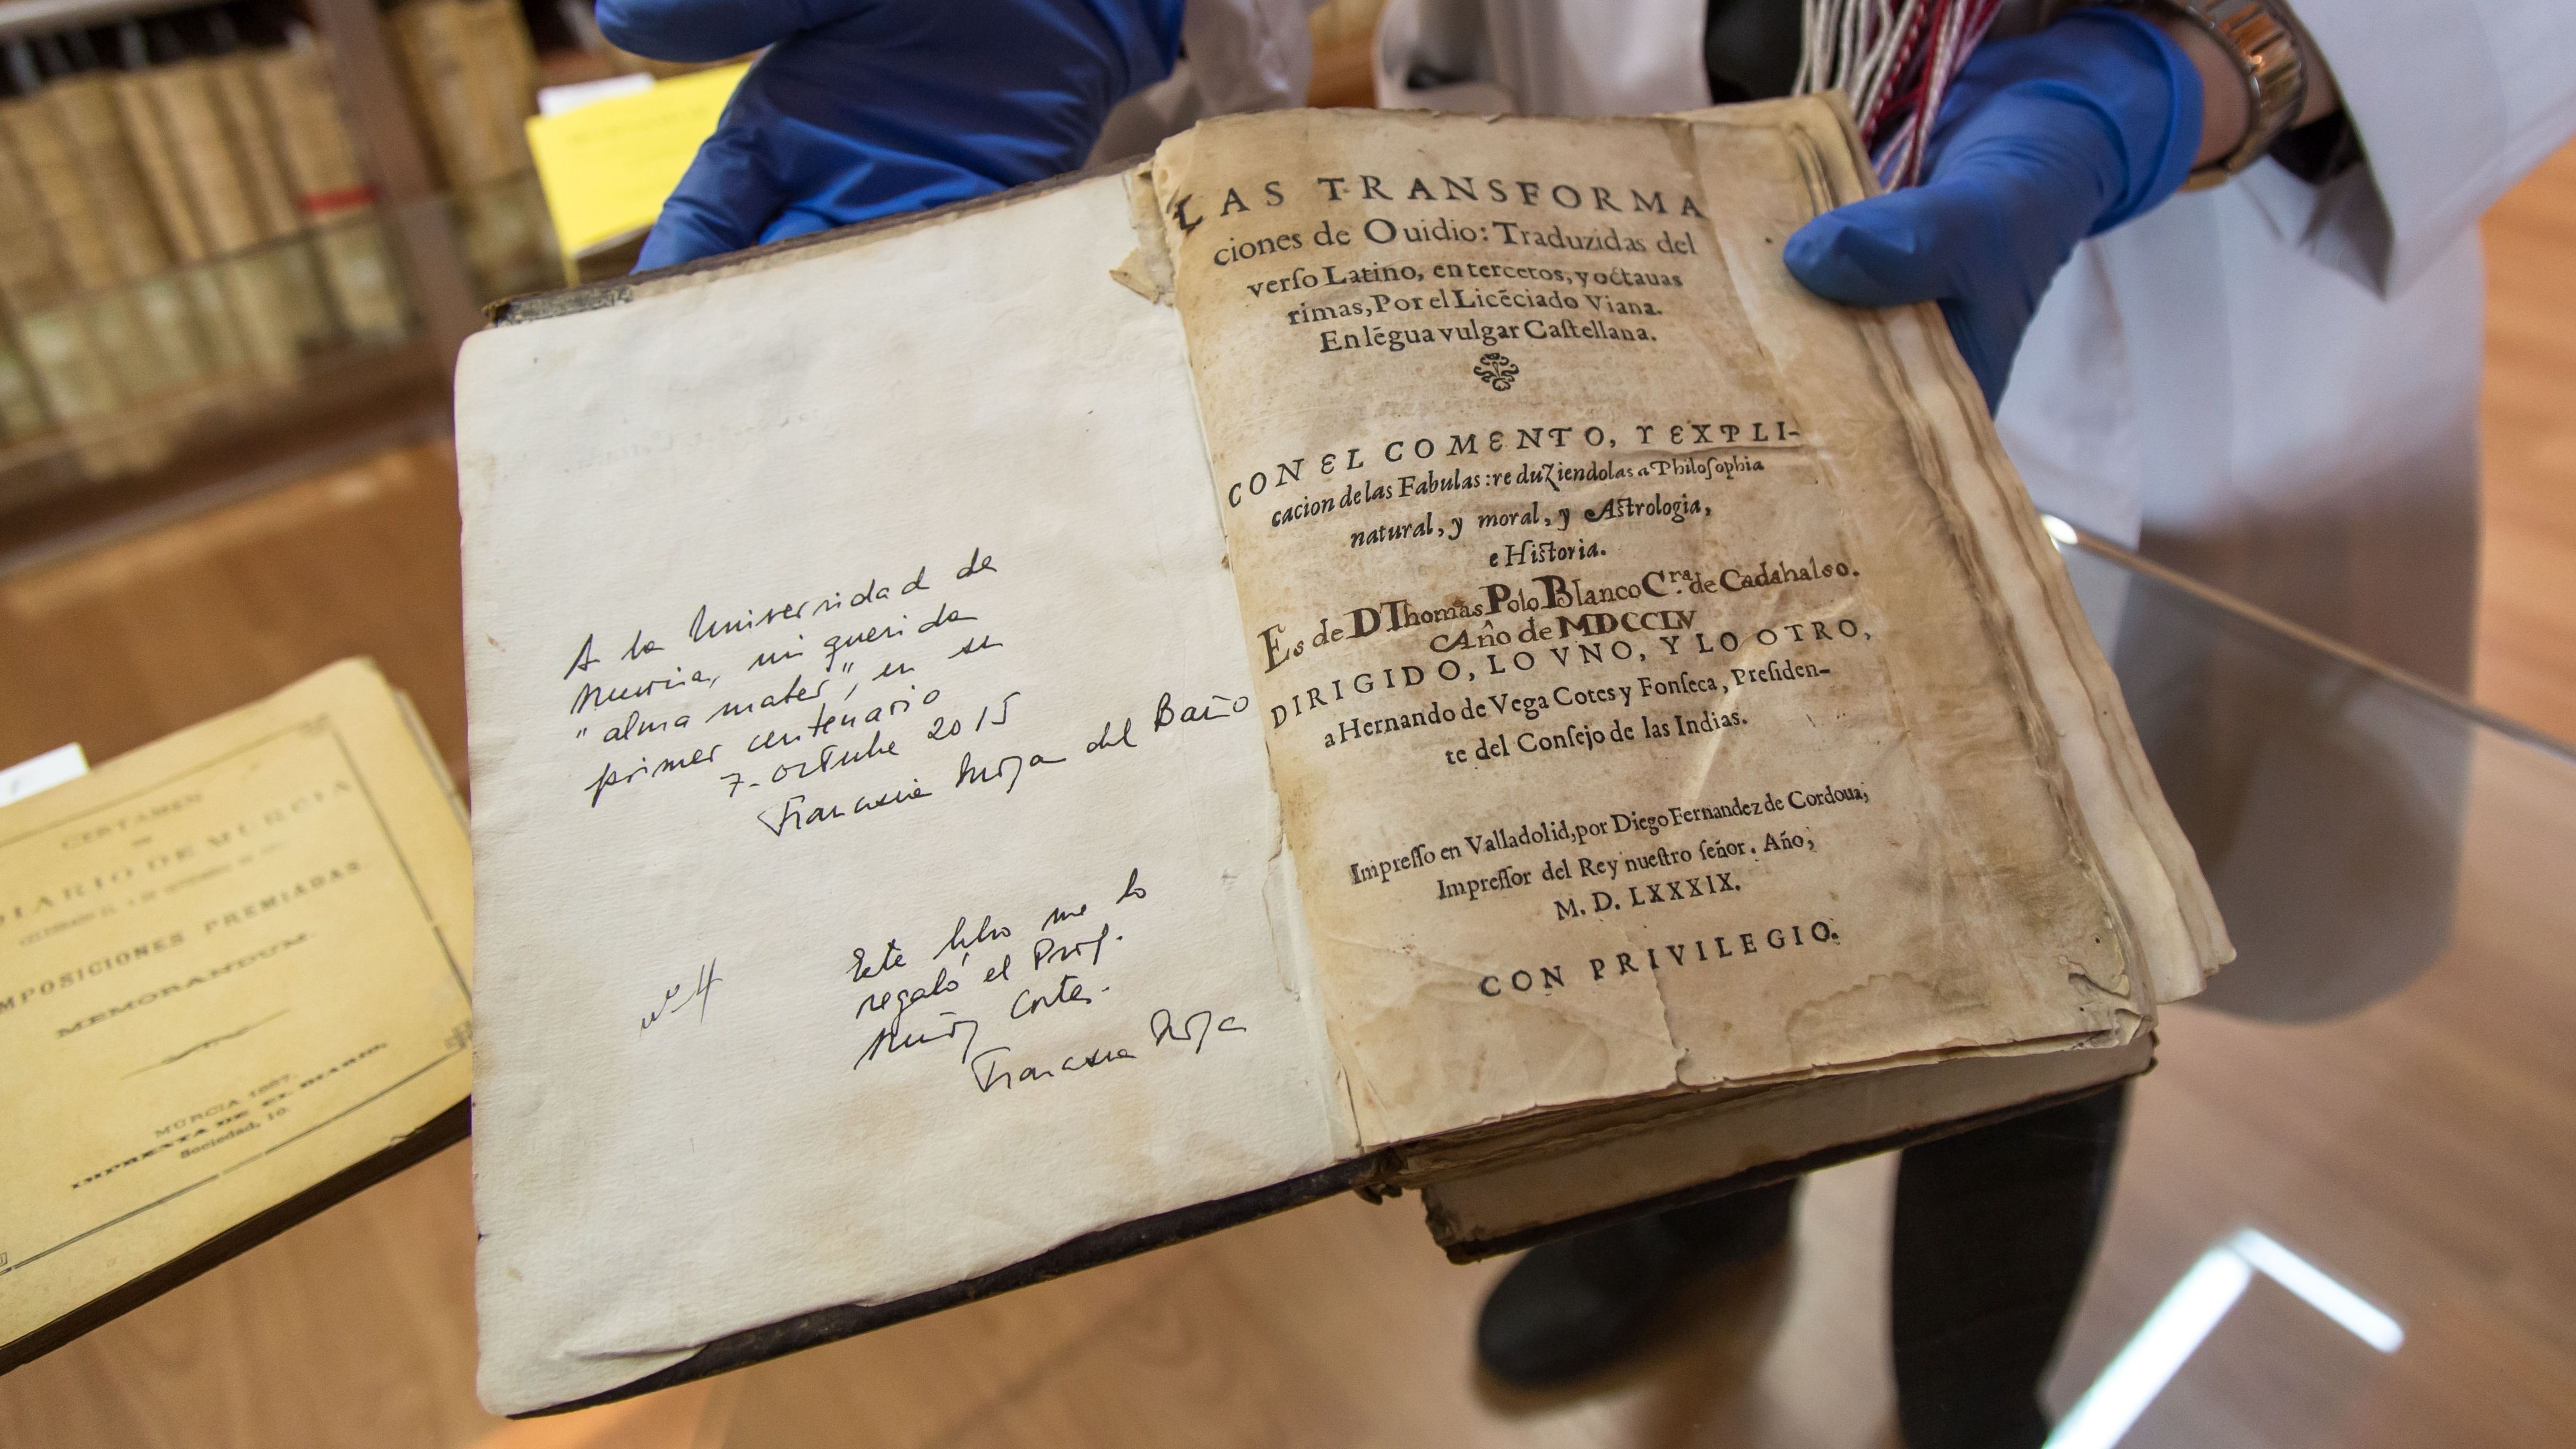 A la Universidad de
Murcia, mi querida
"alma mater", en su
primer centenario
7-octubre 2015
Francisca Moya del Baño
nº 4
Este libro me lo
regaló el Prof.
Muñoz Cortés.
Francisca Moya
LAS TRANSFORMA
ciones de Ouidio: Traduzidas del
verſo Latino, en tercetos, y octauas
rimas, Por el Licẽciado Viana.
En lẽgua vulgar Caſtellana.
CON EL COMENTO, Y EXPLI-
cacion de las Fabulas: reduziendolas a Philoſophia
natural, y moral, y Aſtrologia,
e Hiſtoria.
Es de D Thomas Polo Blanco Cra. de Cadahalso.
Año de MDCCLV
DIRIGIDO, LO VNO, Y LO OTRO,
a Hernando de Vega Cotes y Fonſeca, Preſiden-
te del Conſejo de las Indias.
Impreſſo en Valladolid, por Diego Fernandez de Cordoua,
Impreſſor del Rey nueſtro ſeñor. Año,
M. D. LXXXIX.
CON PRIVILEGIO.
CERTAMEN
DE
DIARIO DE MURCIA
MPOSICIONES PREMIADAS
MEMORANDUM.
MURCIA 1887.
IMPRENTA DE EL DIARIO,
Sociedad, 10.